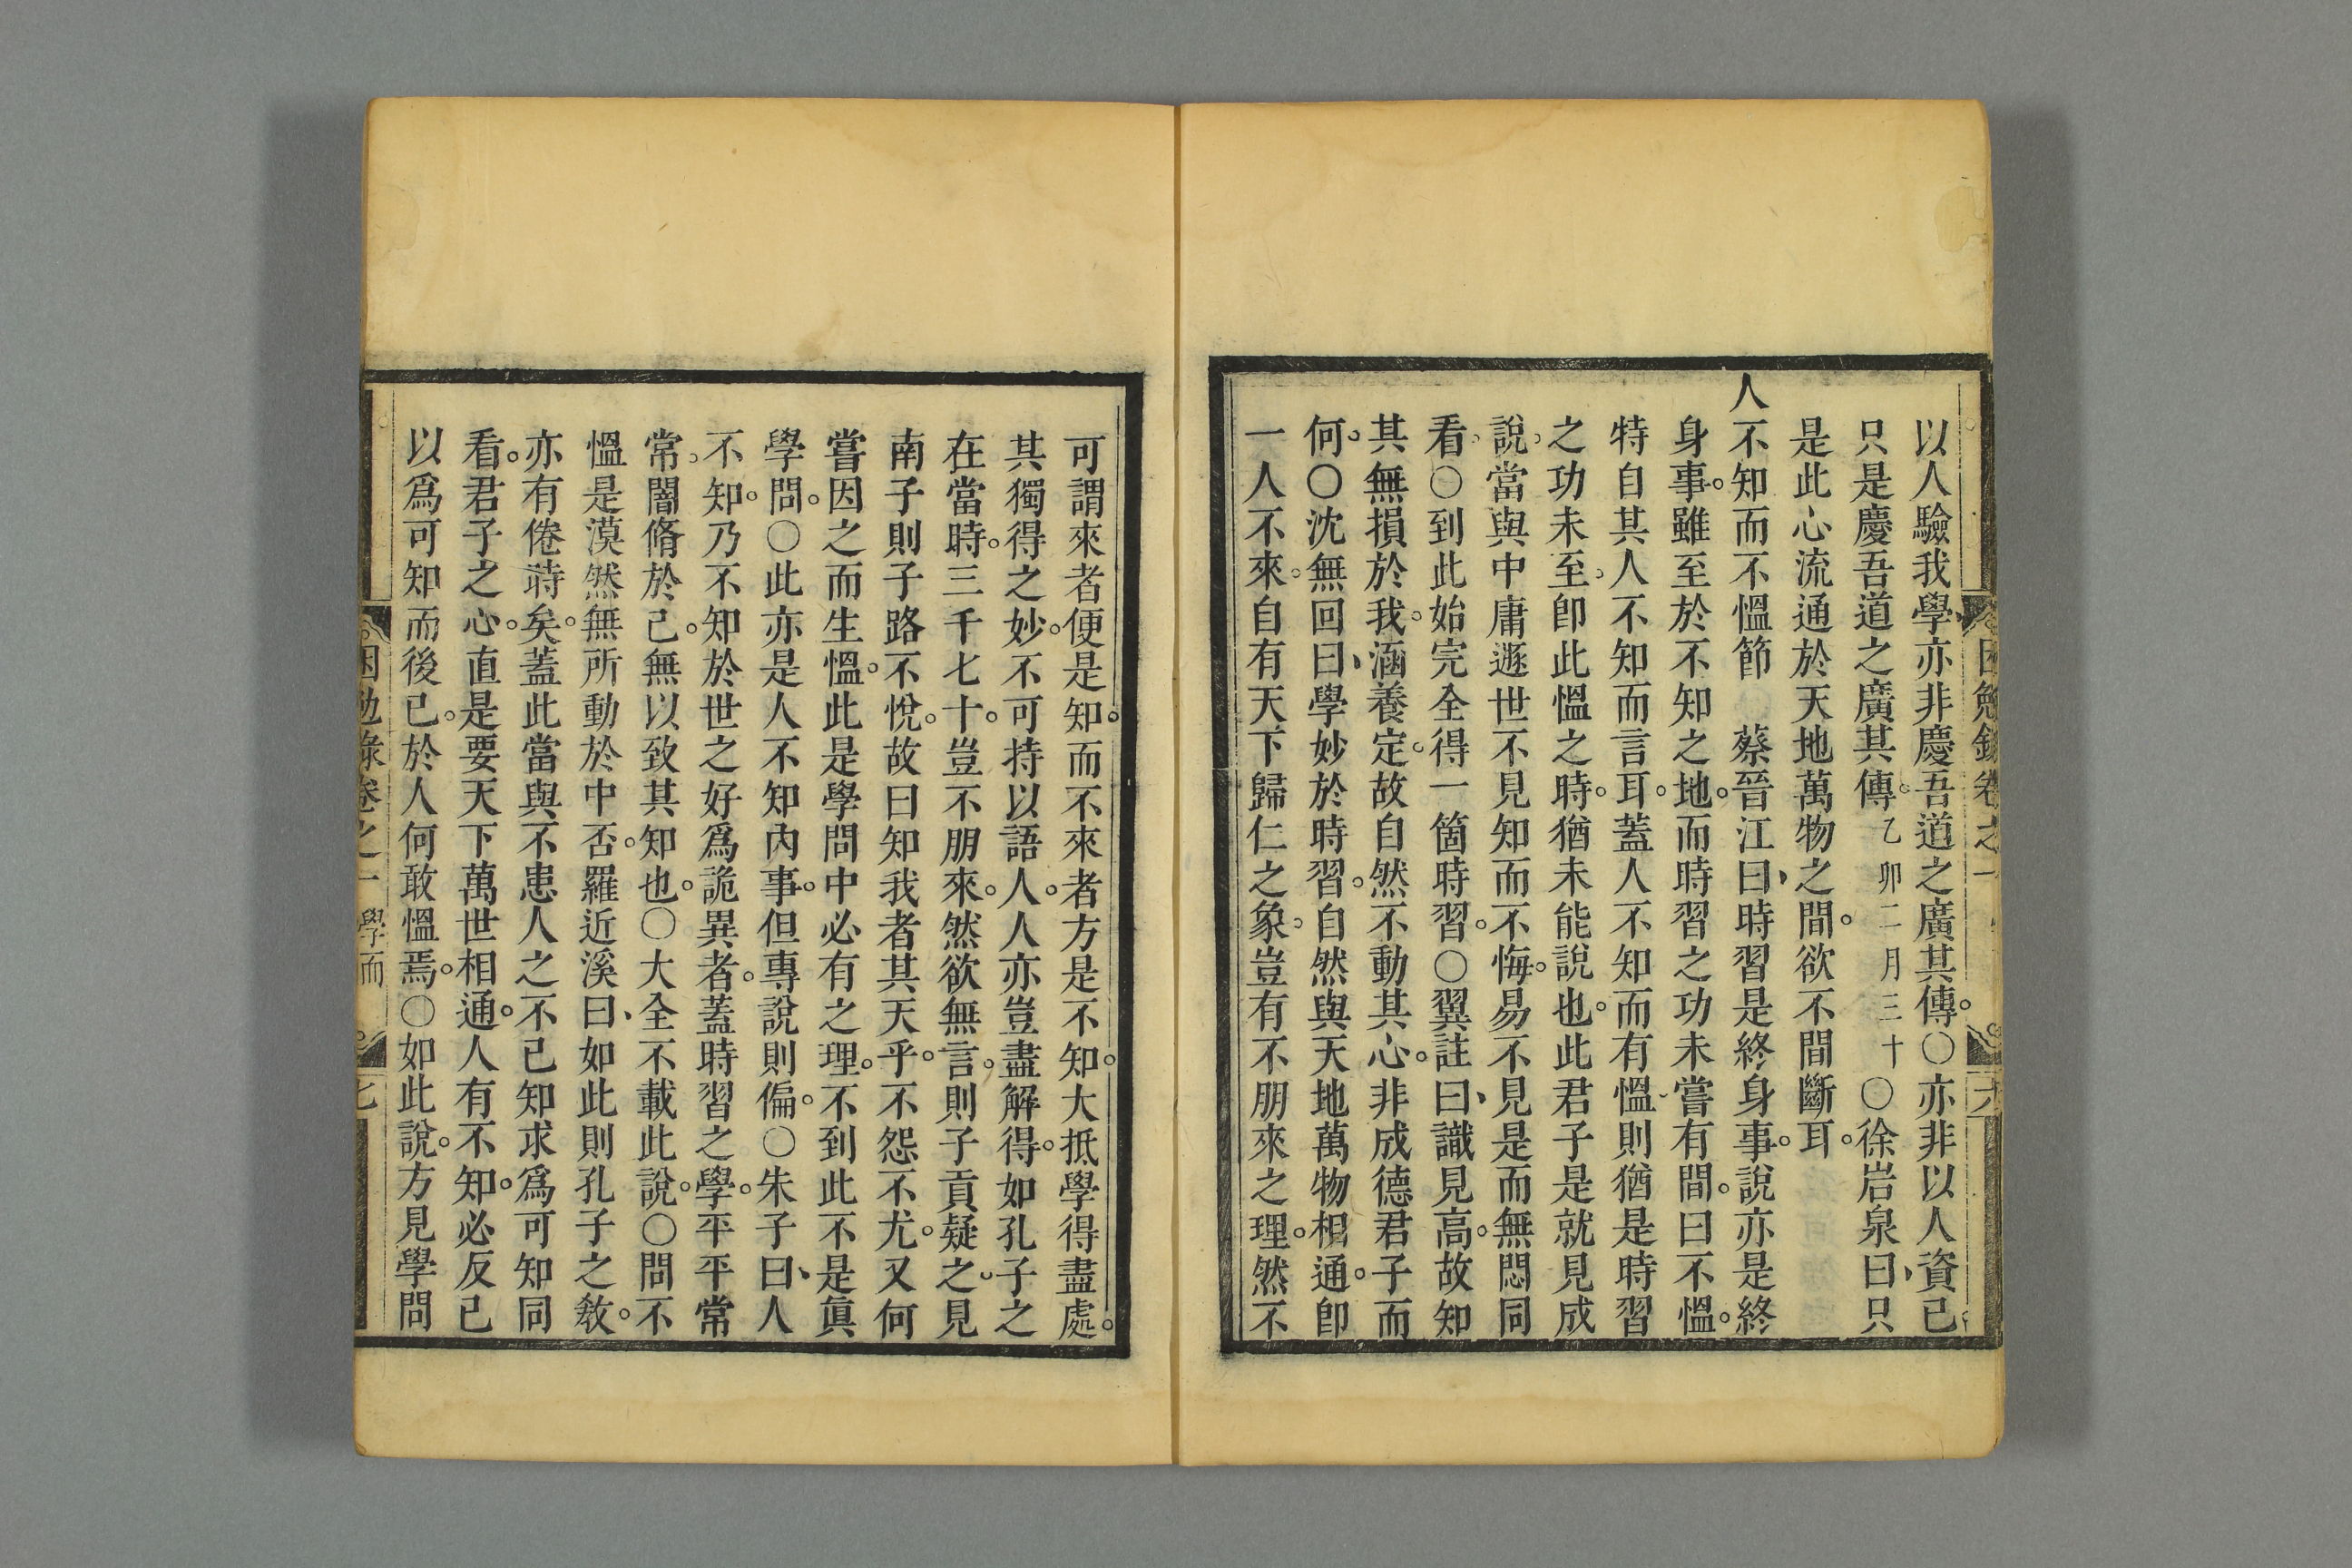 以人驗我學亦非慶吾道之廣其傳。○亦非以人資已
只是慶吾道之廣其傳。乙卯二月三十○徐岩泉曰、只
是此心流通於天地萬物之間。欲不間斷耳。
人不知而不慍節　蔡晉江曰、時習是終身事。說亦是終
身事。雖至於不知之地。而時習之功未嘗有間。曰不慍。
特自其人不知而言耳。蓋人不知而有慍則猶是時習
之功未至。卽此慍之時。猶未能說也。此君子是就見成
說。當與中庸遯世不見知而不悔。易不見是而無悶同
看。○到此始完全得一箇時習。○翼註曰、識見高。故知
其無損於我。涵養定。故自然不動其心。非成德君子而
何。○沈無回曰、學妙於時習。自然與天地萬物相通。卽
一人不來。自有天下歸仁之象。豈有不朋來之理。然不
困勉錄卷之一
六
可謂來者便是知。而不來者方是不知。大抵學得盡處。
其獨得之妙。不可持以語人。人亦豈盡解得。如孔子之
在當時。三千七十。豈不朋來。然欲無言。則子貢疑之。見
南子則子路不悅。故曰知我者其天乎。不怨不尤。又何
嘗因之而生慍。此是學問中必有之理。不到此不是眞
學問。○此亦是人不知內事。但專說則偏。○朱子曰、人
不知。乃不知於世之好爲詭異者。蓋時習之學。平平常
常。闇脩於己。無以致其知也。○大全不載此說。○問不
慍是漠然無所動於中否。羅近溪曰、如此則孔子之敎。
亦有倦時矣。蓋此當與不患人之不己知求爲可知同
看。君子之心。直是要天下萬世相通。人有不知。必反己
以爲可知而後已。於人何敢慍焉。○如此說。方見學問
困勉錄卷之一　學而
七